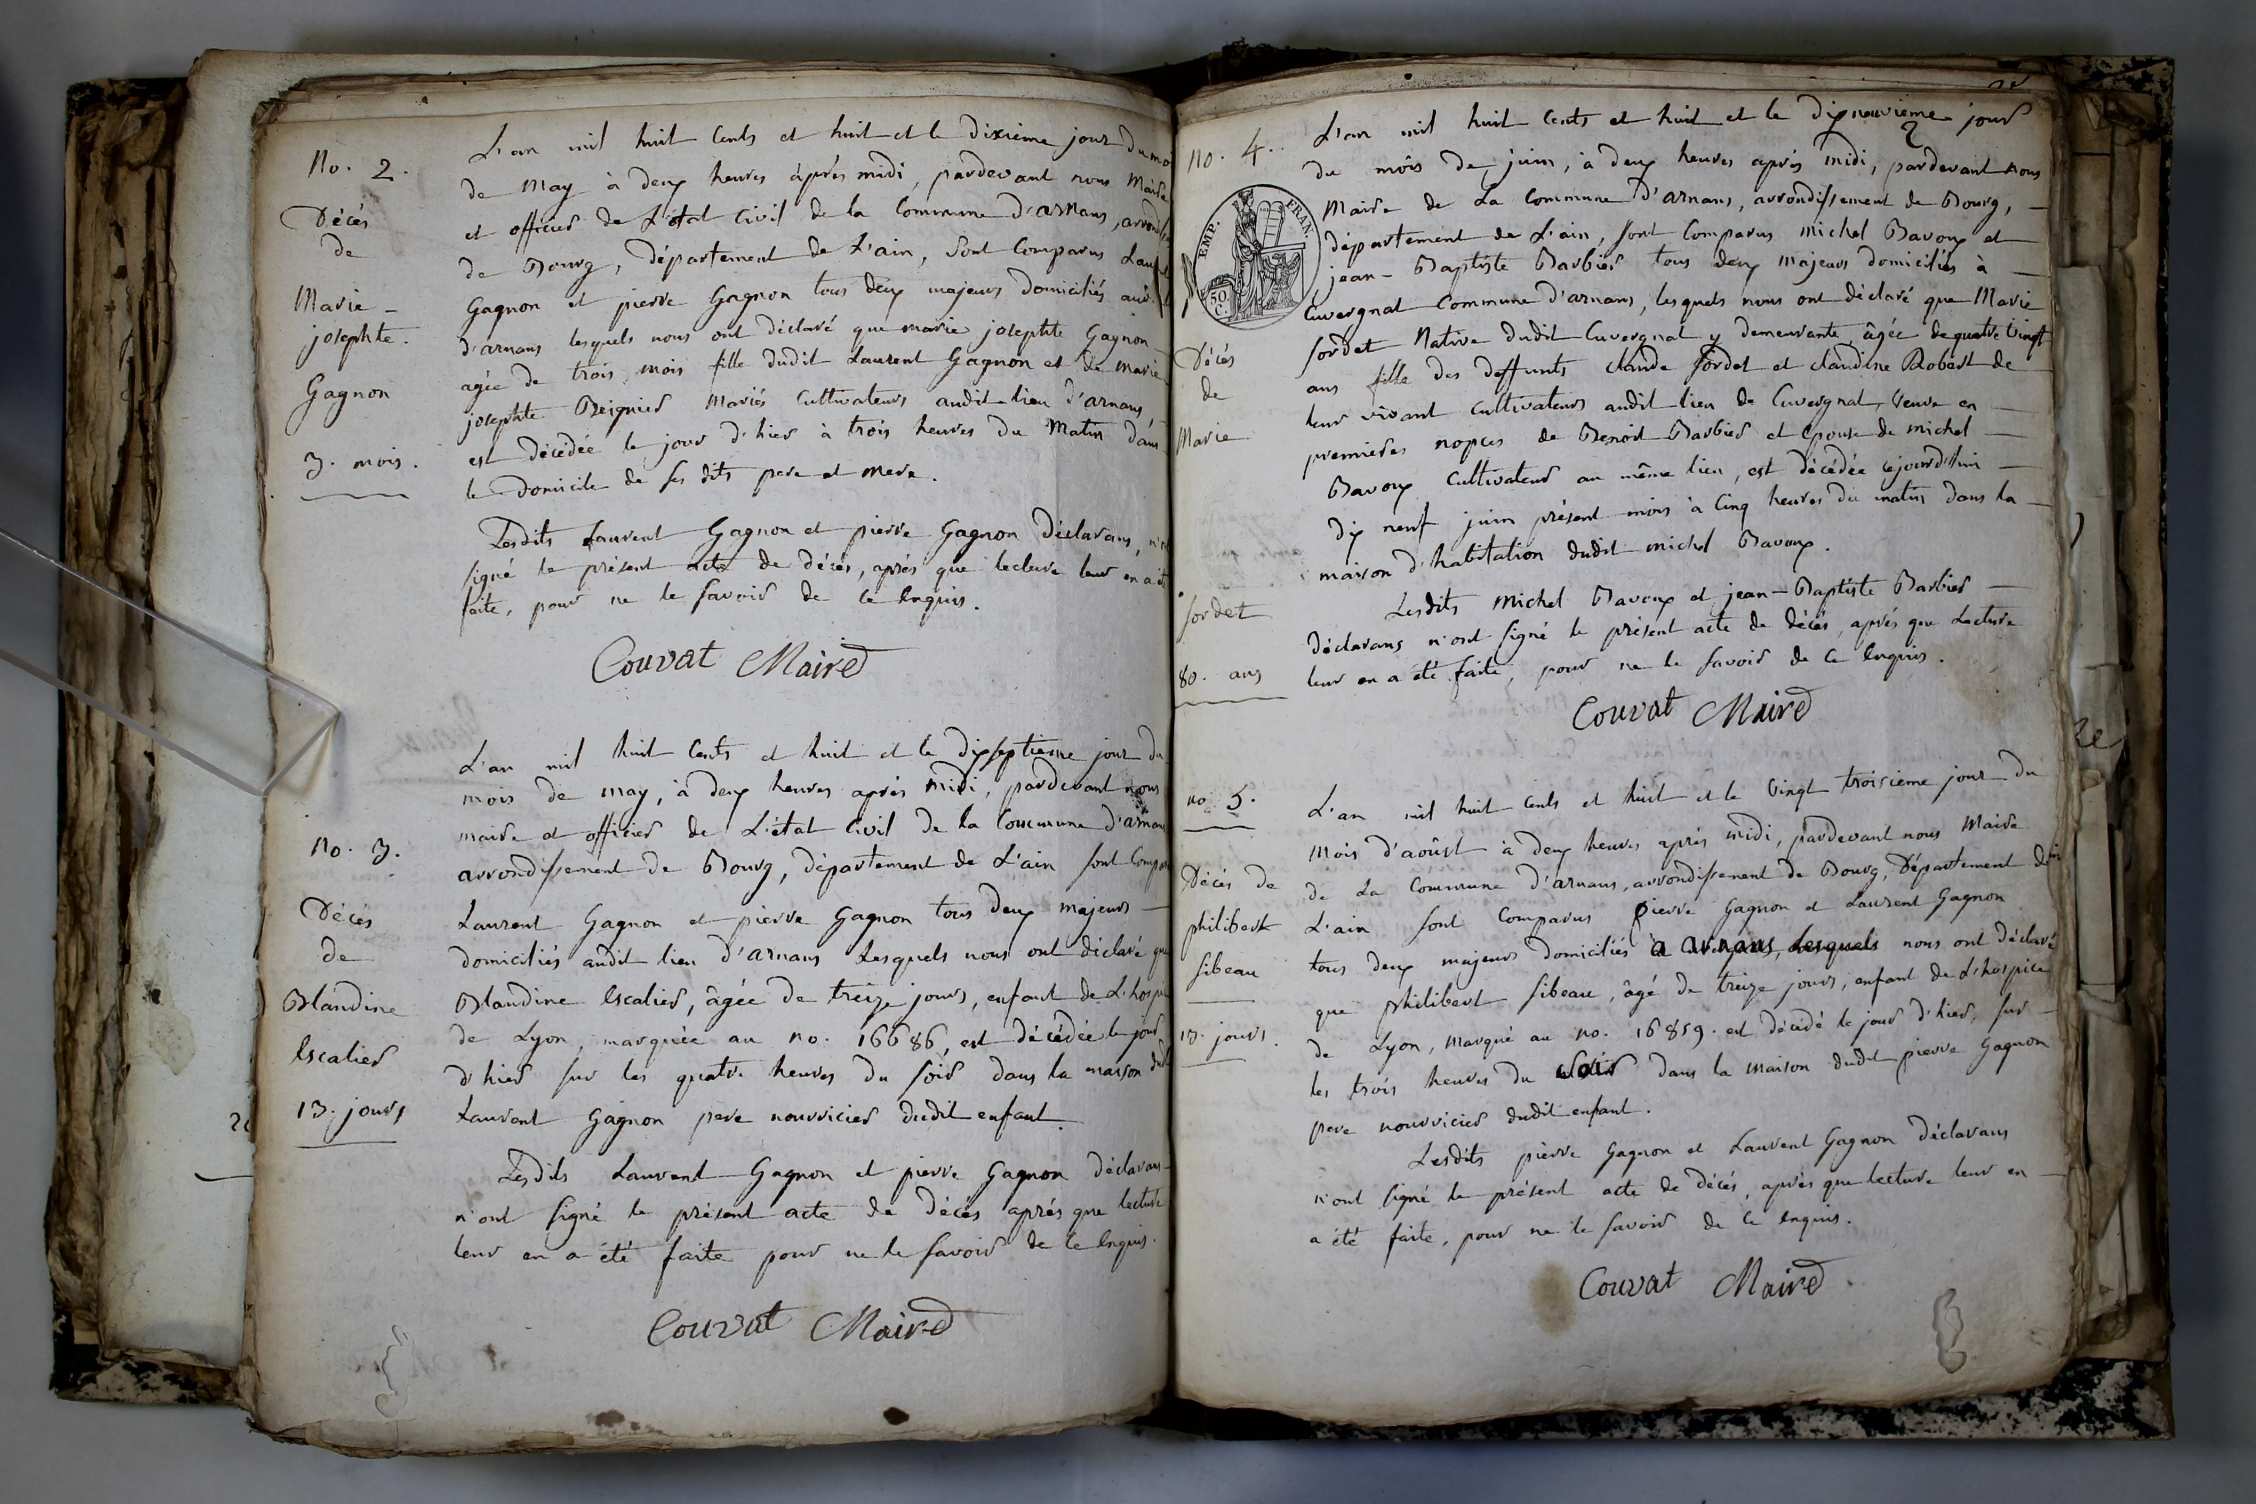 No. 2.
Décés
de
Marie -
josephte.
Gagnon
3. mois.
L'an mil huit Cents et huit et le dixieme jour du mo
de May à deux heures après midi, pardevant nous Maire
et officier de L'état Civil de la Commune d'arnans, arrondis
de Bourg, département de L'ain, sont Comparus Laurent
Gagnon et pierre Gagnon tous deux majeurs domiciliés audit
d'arnans lesquels nous ont déclaré que marie josephte Gagnon
agée de trois mois fille dudit Laurent Gagnon et de marie
josephte Beignier Mariés Cultivateurs audit lieu d'arnans,
est décédée le jour d'hier à trois heures du Matin dans
le domicile de ses dits pere et mere.
Lesdits Laurent Gagnon et pierre Gagnon déclarans, n'ont
signé le présent acte de décés, après que lecture leur en a été
faite, pour ne le savoir de ce Enquis.
Couvat Maire
No. 3.
Décés
de
Blandine
Escalier
13. jours
L'an mil huit Cents et huit et le dixseptieme jour du
mois de may, à deux heures après midi, pardevant nous
maire et officier de L'état Civil de la Commune d'arnans
arrondissement de Bourg, département de L'ain sont Compar
Laurent Gagnon et pierre Gagnon tous deux majeurs —
domiciliés audit lieu d'arnans Lesquels nous ont déclaré que
Blandine Escalier, âgée de treize jours, enfant de L'hospice
de Lyon, marquée au no. 16686, est décédée le jour
d'hier sur les quatre heures du soir dans la maison dud
Laurent Gagnon pere nourricier dudit enfant.
Lesdits Laurent Gagnon et pierre Gagnon déclarans
n'ont signé le présent acte de décés après que lecture
leur en a été faite pour ne le savoir de ce Enquis.
Couvat Maire
No. 4.
EMP. FRAN.
50 C.
Décés
de
Marie
sordet
80. ans
L'an mil huit Cents et huit et le dixneuvieme jour
du mois de juin, à deux heures après midi, pardevant nous
Maire de La Commune d'arnans, arrondissement de Bourg, —
département de L'ain, sont Comparus michel Bavoux et
jean - Baptiste Barbier tous deux majeurs domiciliés à —
Cuvergnat Commune d'arnans, lesquels nous ont déclaré que Marie
sordet Native dudit Cuvergnat y demeurante, âgée de quatre vingt
ans fille des deffunts claude sordet et claudine Robert de
leur vivant Cultivateurs audit lieu de Cuvergnat, veuve en —
premieres nopces de Benoit Barbier et Epouse de michel —
Bavoux Cultivateur au même lieu, est décédée cejourd'hui —
dix neuf juin présent mois à Cinq heures du matin dans la —
maison d'habitation dudit michel Bavoux.
Lesdits Michel Bavoux et jean - Baptiste Barbier —
déclarans n'ont signé le présent acte de décés, après que Lecture
leur en a été faite, pour ne le savoir de ce Enquis.
Couvat Maire
no 5.
Décés de
philibert
sibeau
13. jours.
L'an mil huit Cents et huit et le vingt troisieme jour du
Mois d'août à deux heures après midi, pardevant nous Maire
de La Commune d'arnans, arrondissement de Bourg, département de
L'ain sont Comparus pierre Gagnon et Laurent Gagnon
tous deux majeurs domiciliés a arnans, Lesquels nous ont déclaré
que philibert sibeau, âgé de treize jours, enfant de L'hospice
de Lyon, marqué au no. 16859. est décédé le jour d'hier, sur —
les trois heures du soir dans la Maison dudit pierre Gagnon
pere nourricier dudit enfant.
Lesdits pierre Gagnon et Laurent Gagnon déclarans
n'ont signé le présent acte de décés, après que lecture leur en —
a été faite, pour ne le savoir de ce Enquis.
Couvat Maire